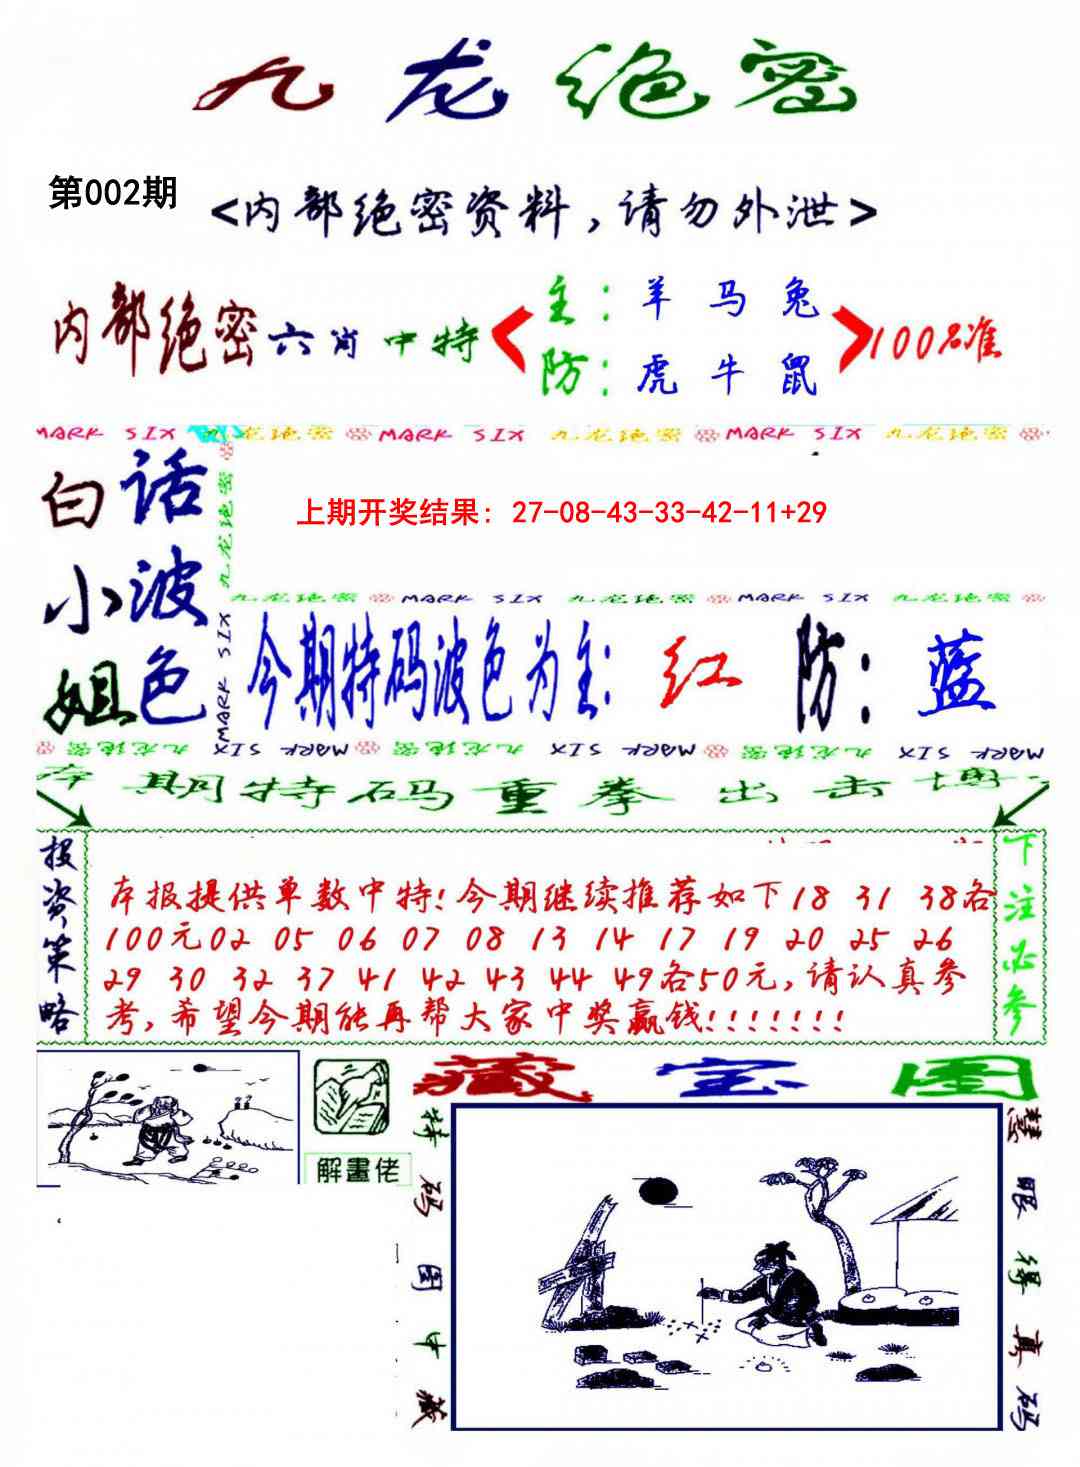 九龙绝密
第002期
<内部绝密资料，请勿外泄>
内部绝密六肖中特
主：羊 马 兔
防：虎 牛 鼠
100%准
MARK SIX 九龙绝密 MARK SIX 九龙绝密 MARK SIX 九龙绝密
白话
小波
姐色
九龙绝密
MARK SIX
上期开奖结果: 27-08-43-33-42-11+29
九龙绝密 MARK SIX 九龙绝密 MARK SIX 九龙绝密
今期特码波色为主：红 防：蓝
九龙绝密 MARK SIX 九龙绝密 MARK SIX 九龙绝密 MARK SIX
本期特码重拳出击博
投资策略
本报提供单数中特!今期继续推荐如下18 31 38各
100元02 05 06 07 08 13 14 17 19 20 25 26
29 30 32 37 41 42 43 44 49各50元,请认真参
考,希望今期能再帮大家中奖赢钱!!!!!!!
下注必参
解畫佬
藏宝图
特码图中藏
慧眼得真码